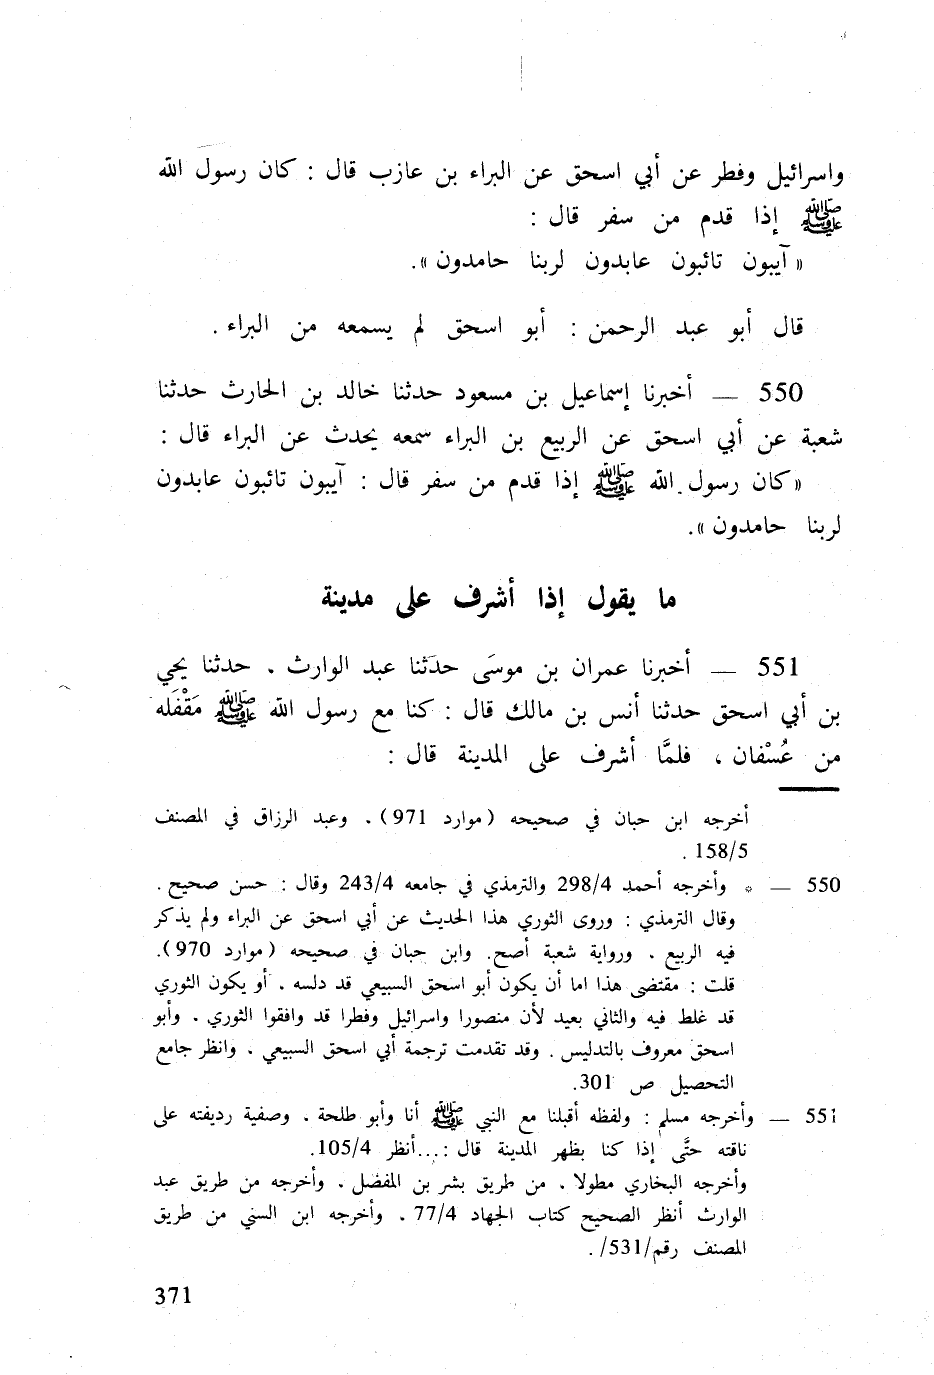 واسرائيل وفطر عن أبي اسحق عن البراء بن عازب قال : كان رسول الله
ﷺ إذا قدم من سفر قال :
« آيبون تائبون عابدون لربنا حامدون ».
قال أبو عبد الرحمن : أبو اسحق لم يسمعه من البراء .
550 — أخبرنا إسماعيل بن مسعود حدثنا خالد بن الحارث حدثنا
شعبة عن أبي اسحق عن الربيع بن البراء سمعه يحدث عن البراء قال :
«كان رسول الله ﷺ إذا قدم من سفر قال : آيبون تائبون عابدون
لربنا حامدون ».
ما يقول إذا أشرف على مدينة
551 — أخبرنا عمران بن موسَى حدَثنا عبد الوارث . حدثنا يحي
بن أبي اسحق حدثنا أنس بن مالك قال : كنا مع رسول الله ﷺ مَقْفَله
من عُسْفان ، فلمَّا أشرف على المدينة قال :
أخرجه ابن حبان في صحيحه (موارد 971) . وعبد الرزاق في المصنف
158/5 .
550 — * وأخرجه أحمد 298/4 والترمذي في جامعه 243/4 وقال : حسن صحيح .
وقال الترمذي : وروى الثوري هذا الحديث عن أبي اسحق عن البراء ولم يذكر
فيه الربيع . ورواية شعبة أصح. وابن حبان في صحيحه (موارد 970).
قلت : مقتضى هذا اما أن يكون أبو اسحق السبيعي قد دلسه . أو يكون الثوري
قد غلط فيه والثاني بعيد لأن منصورا واسرائيل وفطرا قد وافقوا الثوري . وأبو
اسحق معروف بالتدليس . وقد تقدمت ترجمة أبي اسحق السبيعي . وانظر جامع
التحصيل ص 301.
551 — وأخرجه مسلم : ولفظه أقبلنا مع النبي ﷺ أنا وأبو طلحة . وصفية رديفته على
ناقته حتَّى إذا كنا بظهر المدينة قال :...أنظر 105/4.
وأخرجه البخاري مطولا . من طريق بشر بن المفضل . وأخرجه من طريق عبد
الوارث أنظر الصحيح كتاب الجهاد 77/4 . وأخرجه ابن السني من طريق
المصنف رقم/531/ .
371